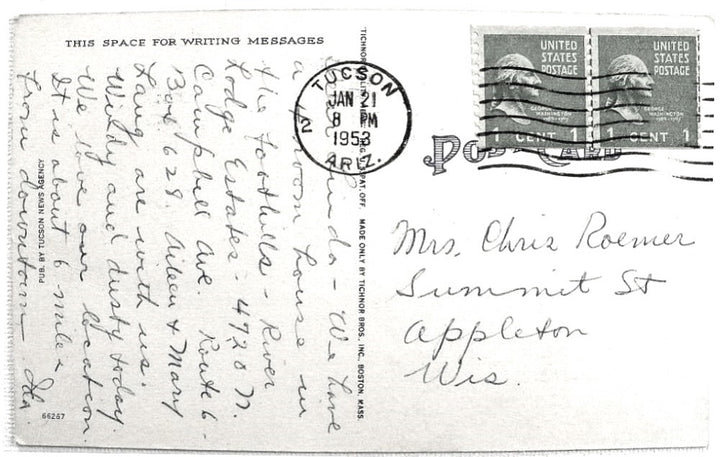 THIS SPACE FOR WRITING MESSAGES
Linda - We have
a room house in
the foothills - River
Lodge Estates. 4720 N.
Campbell Ave. Route 6 -
Box 628. Aileen & Mary
Lang are with us.
Windy and dusty today
We love our location.
It is about 6 miles
from downtown. Ida.
PUB. BY TUCSON NEWS AGENCY
66267
MADE ONLY BY TICHNOR BROS., INC., BOSTON, MASS.
TUCSON
JAN 21
8 PM
1953
ARIZ.
UNITED
STATES
POSTAGE
GEORGE
WASHINGTON
1 CENT 1
UNITED
STATES
POSTAGE
GEORGE
WASHINGTON
1 CENT 1
POST CARD
Mrs. Chris Roemer
Summit St
Appleton
Wis.